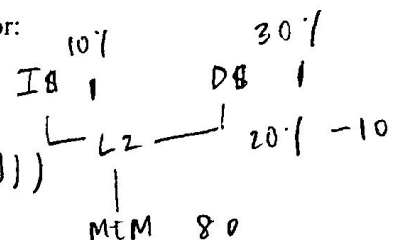 or:
10% 30%
I$ 1 D$ 1
L2 20% -10
)))
MEM 80